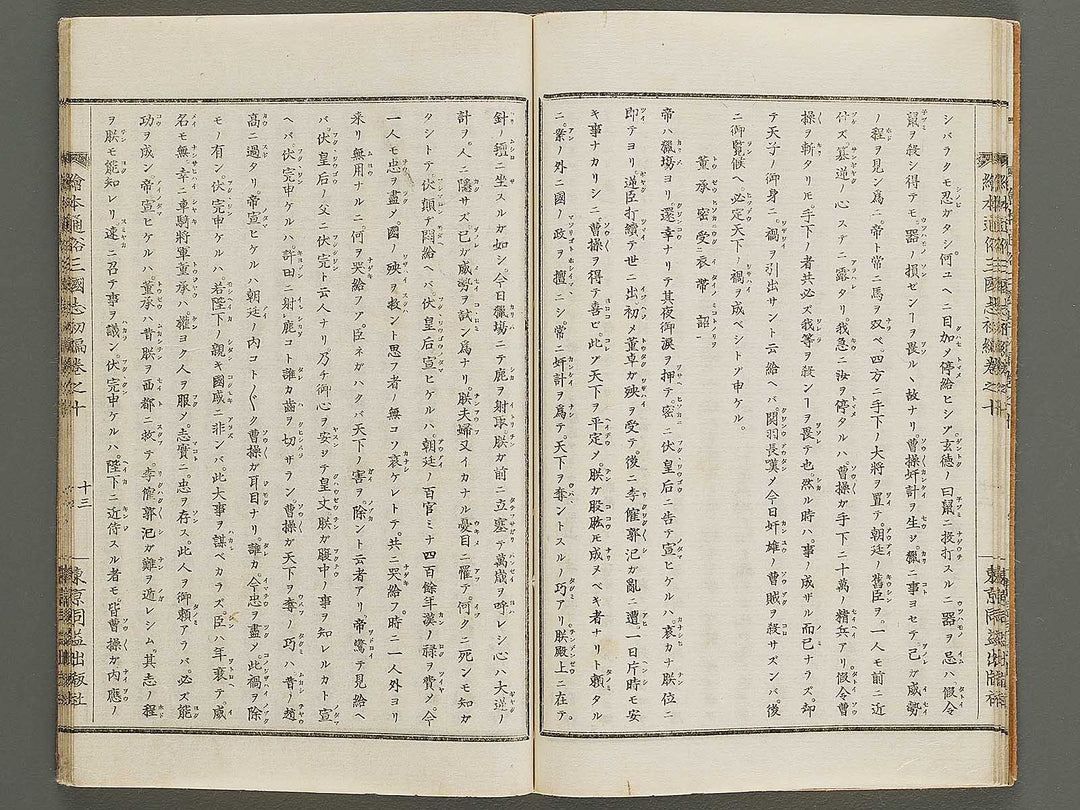 シバラクモ忍ガタシ何ユヘニ目加メ停給ヒシゾ玄德ノ曰鼠ニ投打スルニ器ヲ忌ハ假令
鼠ヲ殺シ得テモ器ノ損ゼンヿヲ畏ル丶故ナリ曹操奸計ヲ生シ獵ニ事ヨセテ己ガ威勢
ノ程ヲ見ン爲ニ帝ト常ニ馬ヲ双ベ四方ニ手下ノ大將ヲ置テ朝廷ノ舊臣ヲ一人モ前ニ近
付ズ簒逆ノ心ステニ露タリ我急ニ汝ヲ停タルハ曹操カ手下ニ十萬ノ精兵アリ假令曹
操ヲ斬タリモ手下ノ者共必ズ我等ヲ殺ンヿヲ畏テ也然ル時ハ事ノ成ザル而已ナラズ却
テ天子ノ御身ニ禍ヲ引出サントト云給ヘバ関羽長嘆メ今日奸雄ノ曹賊ヲ殺サズンバ後
ニ御覧候ヘ必定天下ノ禍ヲ成ベシトゾ申ケル
董承密受衣帶詔
帝ハ獵場ヨリ還幸ナリテ其夜御涙ヲ押テ密ニ伏皇后ニ告テ宣ヒケルハ哀カナ朕位ニ
即テヨリ逆臣打續テ世ニ出初メ董卓ガ殃ヲ受テ後ニ李傕郭汜ガ亂ニ遭一日片時モ安
キ事ナカリシニ曹操ヲ得テ喜ビ此ゾ天下ヲ平定メ朕ガ股肱モ成ヌベキ者ナリト頼タル
ニ案ノ外ニ國ノ政ヲ擅ニシ常ニ奸計ヲ爲テ天下ヲ奪ントスルノ巧アリ朕殿上ニ在テ
針ノ氈ニ坐スルカ如シ今日獵場ニテ鹿ヲ射取朕ガ前ニ立塞テ萬歳ヲ呼レシ心ハ大逆ノ
計ヲ人ニ隱サズ己ガ威勢ヲ試ン爲ナリ朕夫婦又イカナル憂目ニ罹テ何クニ死ンモ知カ
タシトテ伏頭テ悶給ヘバ伏皇后宣ヒケルハ朝廷ノ百官ミナ四百餘年漢ノ禄ヲ費メ今
一人モ忠ヲ盡メ國ノ殃ヲ救ント思フ者ノ無コソ哀ケレトテ共ニ哭給フ時ニ一人外ヨリ
来リ無用ナルニ何ヲ哭給フゾ臣ネガハクバ天下ノ害ヲ除ント云者アリ帝驚テ見給ヘ
バ伏皇后ノ父ニ伏完ト云人ナリ乃チ御心ヲ安シテ皇丈朕ガ腹中ノ事ヲ知レルカト宣
ヘバ伏完申ケルハ許田ニ射鹿コト誰カ齒ヲ切サラン曹操ガ天下ヲ奪ノ巧ハ昔ノ趙
高ニ過タリ帝宣ヒケルハ朝廷ノ内コト〲ク曹操ガ耳目ナリ誰カ今忠ヲ盡ノ此禍ヲ除
モノ有ン伏完申ケルハ若陛下ノ親キ國戚ニ非ンバ此大事ヲ謀ベカラズ臣ハ年衰テ威
名モ無幸ニ車騎將軍董承ハ權ヨク人ヲ服メ志實ニ忠ヲ存ス此人ヲ御頼アラバ必ズ能
功ヲ成ン帝宣ヒケルハ董承ハ昔朕ヲ西都ニ救テ李傕郭汜ガ難ヲ遁レシム其志ノ程
ヲ朕モ能知レリ速ニ召テ事ヲ議ン伏完申ケルハ陛下ニ近侍スル者モ皆曹操ガ内應ノ
繪本通俗三國志初編卷之十
十三
東京同益出版社